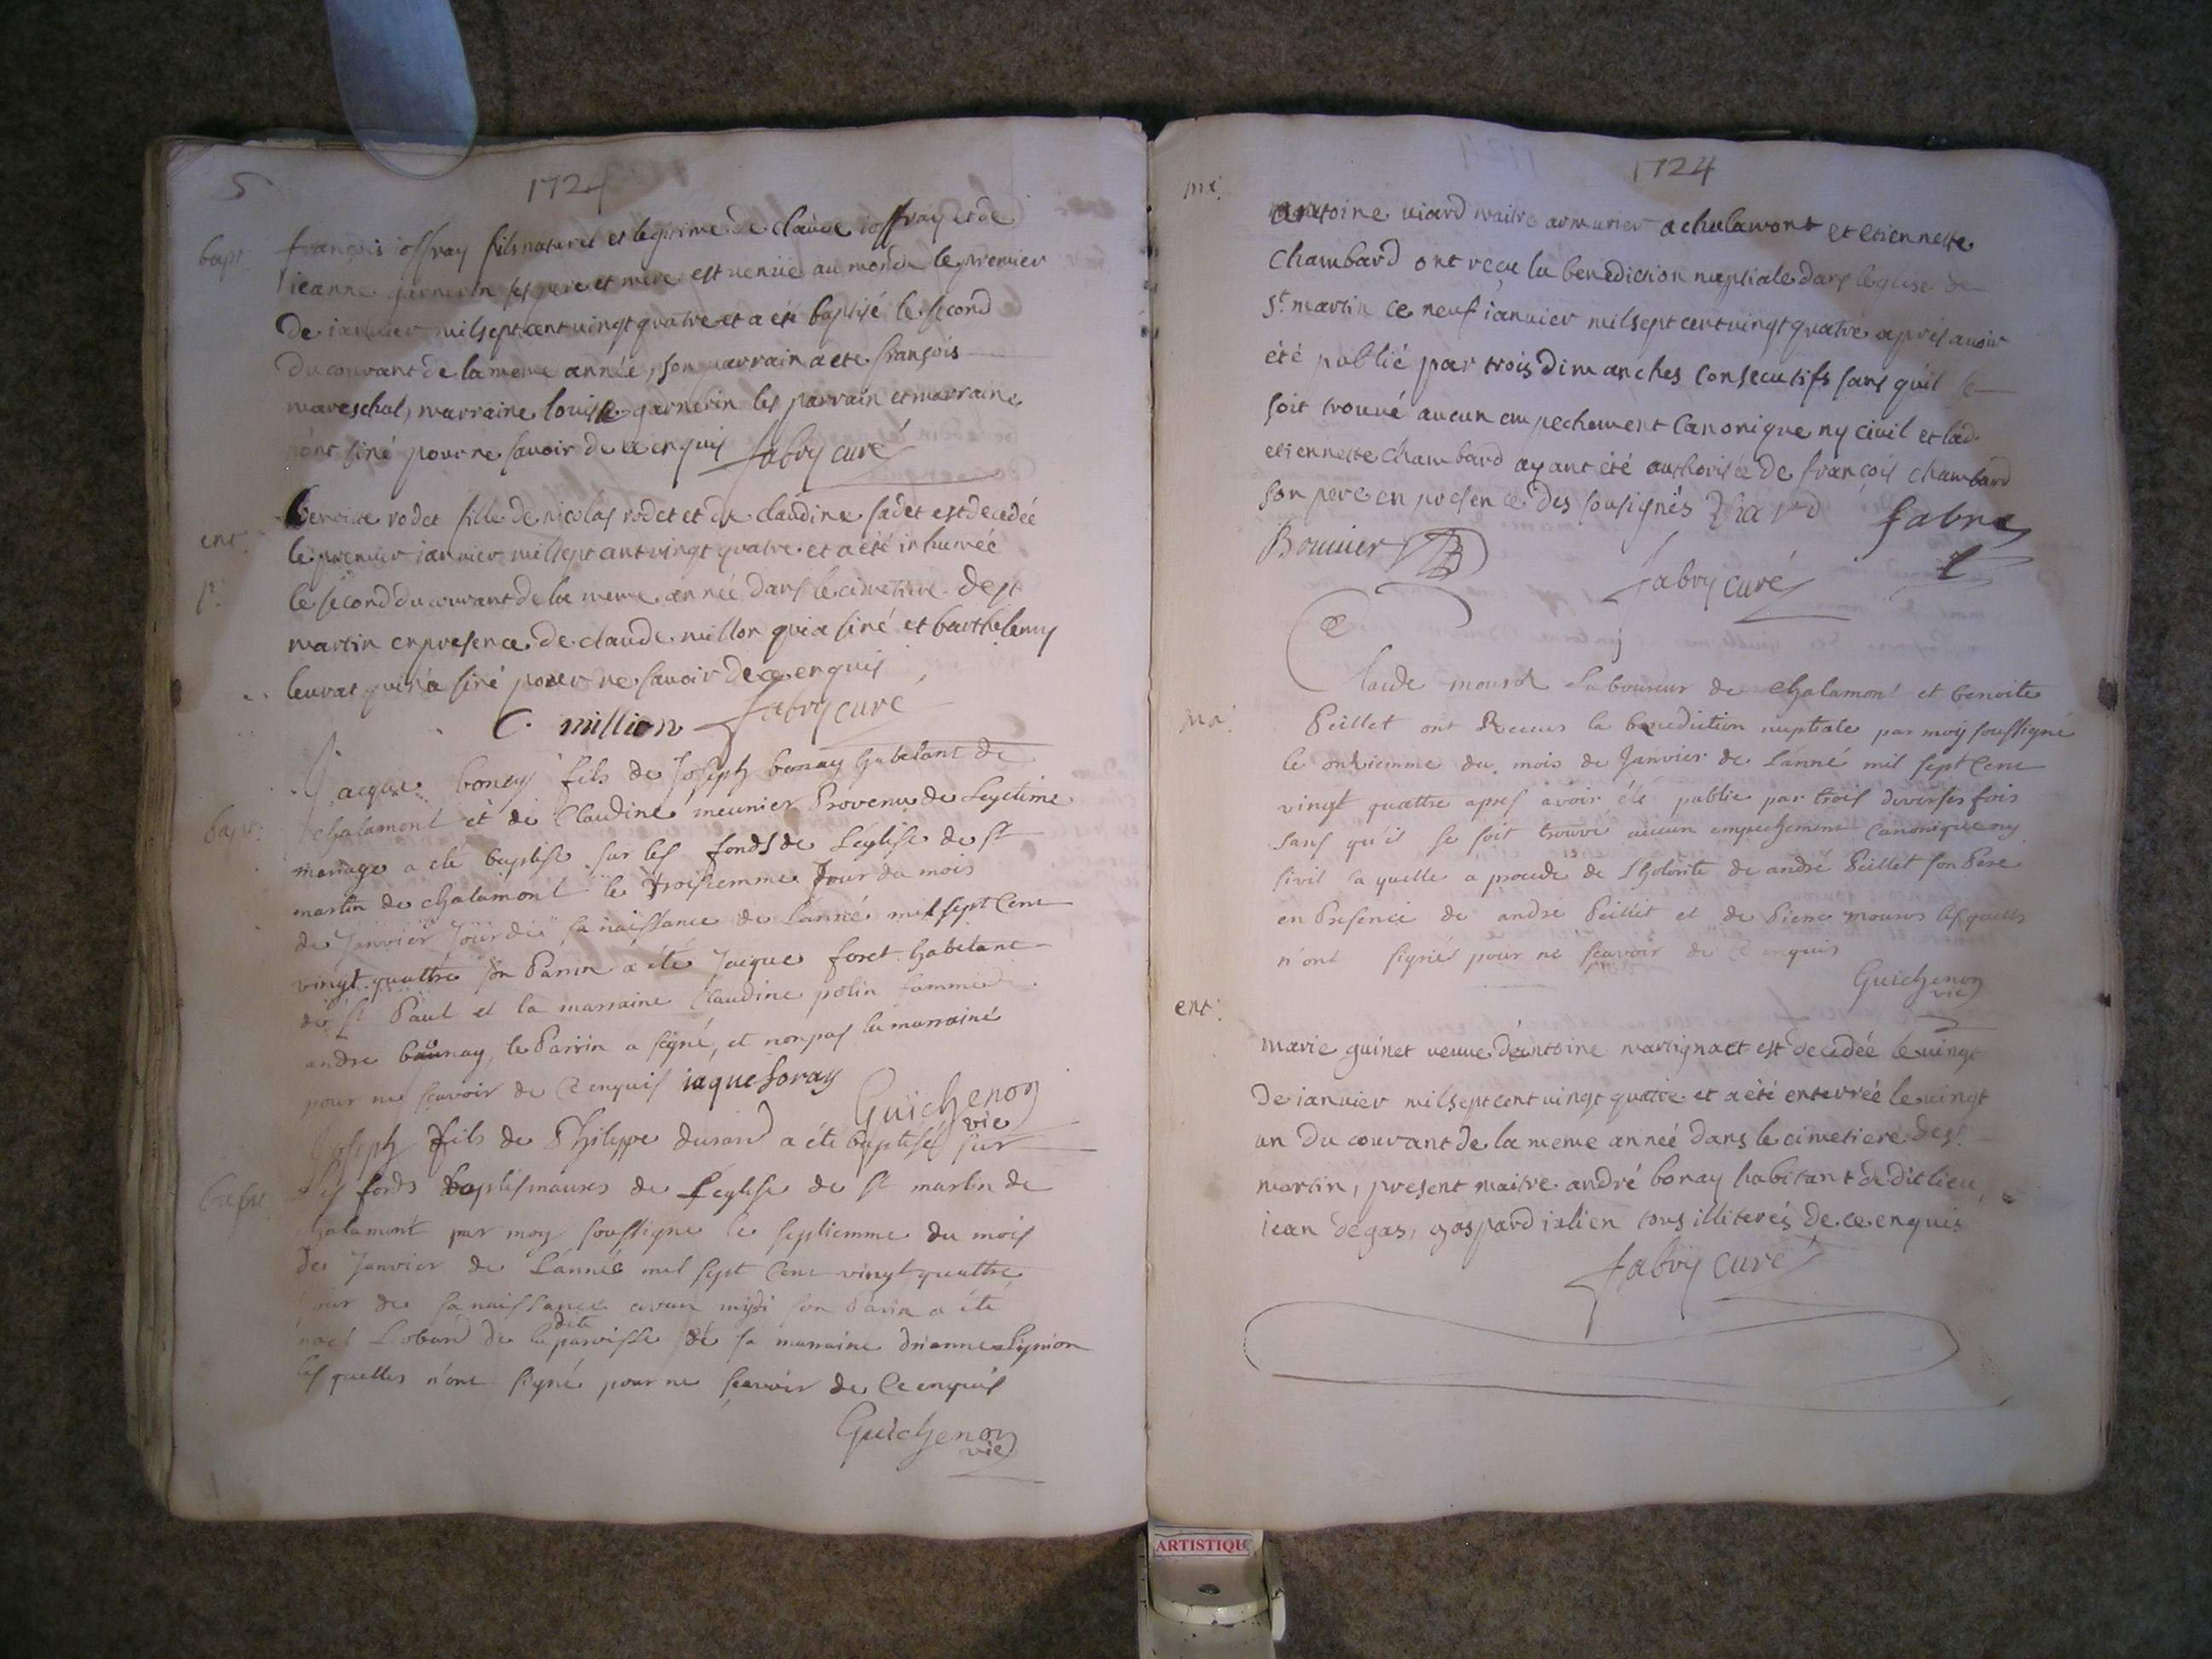 5
1724
bapt.
françois ioffray fils naturel et legitime de claude ioffray et de
ieanne garnerin ses pere et mere est venüe au monde le premier
de ianvier mil sept cent vingt quatre et a eté baptisé le second
du courant de la meme année, son parrain a ete françois
mareschal, marraine louise garnerin les parrain et marraine
n'ont siné pour ne savoir de ce enquis fabry curé
ent.
benoite rodet fille de nicolas rodet et de claudine sadet est decedée
le premier ianvier mil sept cent vingt quatre et a été inhumée
le second du courant de la meme année dans le cimetiere de st
martin en presence de claude millon qui a siné et barthelemy
leurat qui n'a siné pour ne savoir de ce enquis
C. million fabry curé
bapt:
Jacque bonay fils de Joseph bonay habitant de
chalamont et de Claudine meunier Provenu de Legitime
mariage a eté baptisé sur les fonds de L'eglise de st
martin de chalamont le troisiemme Jour du mois
de Janvier Jour de sa naissance de L'anné mil sept Cent
vingt quattre son Parrin a été Jacque foret habitant
de st Paul et la marraine Claudine polin famme
andre bounay, le Parrin a signé, et non pas la marraine
pour ne scavoir de Ce enquis iaque foray
Guichenon vic
bapt.
Joseph fils de Philippe durand a été baptisé sur
les fonds baptismaux de L'eglise de st martin de
chalamont par moy soussigne le septiemme du mois
de Janvier de L'année mil sept Cent vingt quattre
Jour de sa naissance avan midi son Parin a été
noel Lobard de la dite paroisse de sa marraine
les quelles n'ont signé pour ne scavoir de Ce enquis
Guichenon
vic
1724
antoine viard maitre armurier a chalamont et etiennette
chambard ont reçeu la benediction nuptiale dans leglise de
st. martin ce neuf ianvier mil sept cent vingt quatre apres avoir
été publié par trois dimanches consecutifs sans qu'il se
soit trouvé aucun empechement canonique ny civil et lad.
etiennette chambard ayant été authorisée de françois chambard
son pere en presence des sousignés Viard fabre
Bouvier
fabry curé
ma.
Claude Laboureur de chalamont et benoite
Peillet ont Receus la benediction nuptiale par moy soussigné
le onziemme du mois de Janvier de L'anné mil sept Cent
vingt quattre apres avoir été publie par trois diverses fois
sans qu'il se soit trouvé aucun empechement canonique ny
sivil la quelle a procede de Lhotorite de andré Peillet son Pere
en Presence de andre Peillet et de Pierre lesquels
n'ont signés pour ne scavoir de Ce enquis
Guichenon
vic
ent.
marie guinet veuve d'antoine martignact est decedée le vingt
de ianvier mil sept cent vingt quatre et a été enterrée le vingt
un du courant de la meme année dans le cimetiere de st.
martin, present maitre andré bonay habitant dudit lieu,
iean degas, gaspard iulien tous illiterés de ce enquis
fabry curé
ARTISTIQU